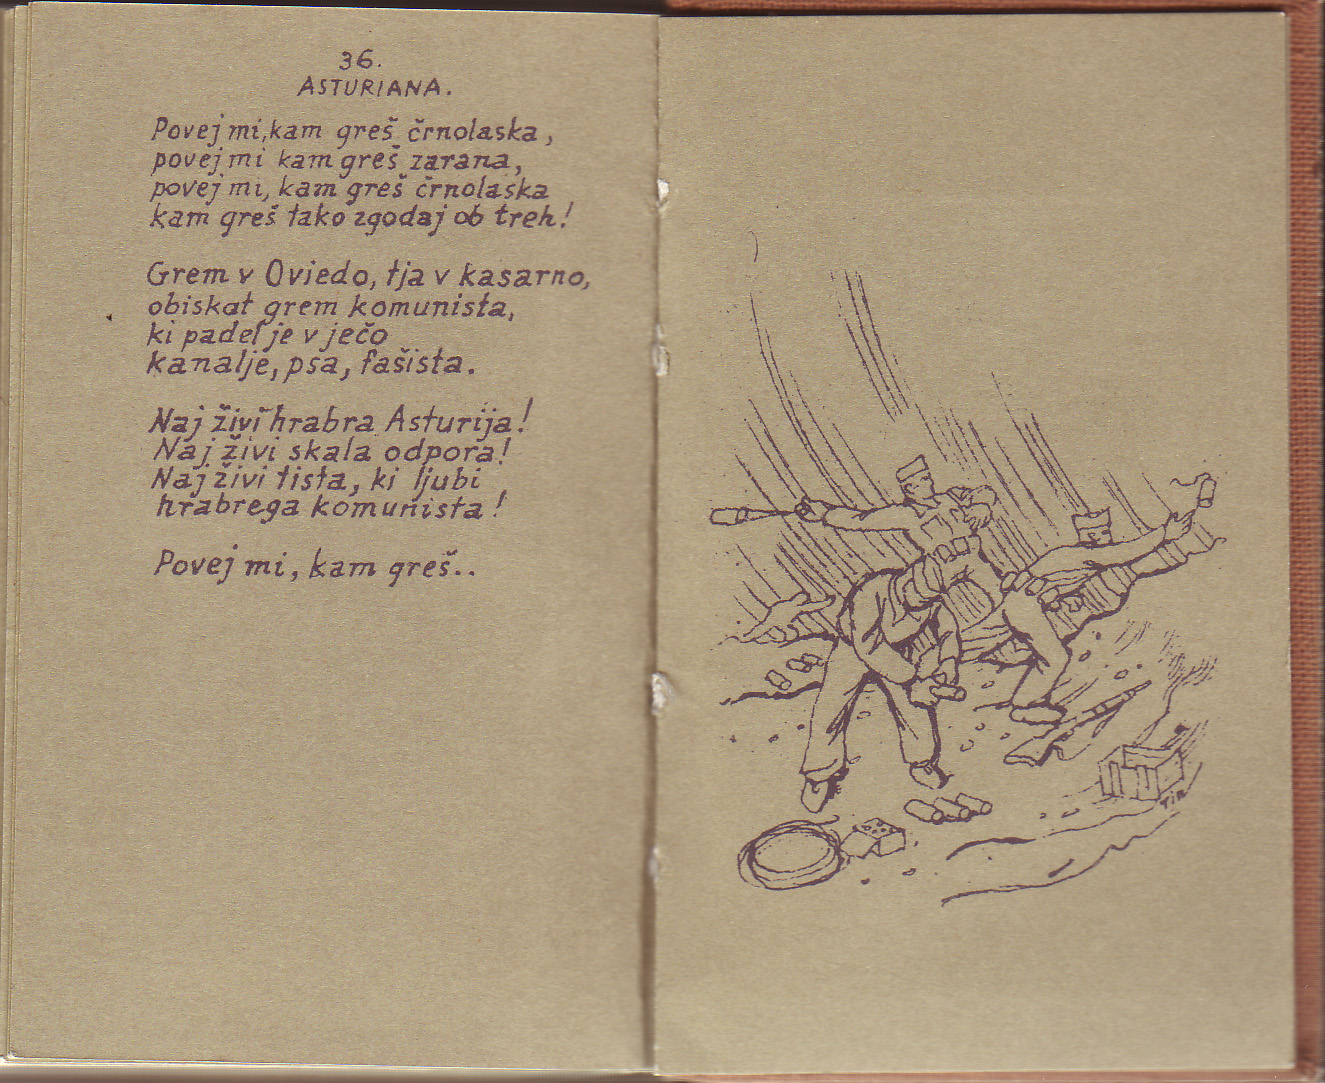 36.
ASTURIANA.
Povej mi, kam greš črnolaska,
povej mi kam greš zarana,
povej mi, kam greš črnolaska
kam greš tako zgodaj ob treh!
Grem v Oviedo, tja v kasarno,
obiskat grem komunista,
ki padel je v ječo
kanalje, psa, fašista.
Naj živi hrabra Asturija!
Naj živi skala odpora!
Naj živi tista, ki ljubi
hrabrega komunista!
Povej mi, kam greš..